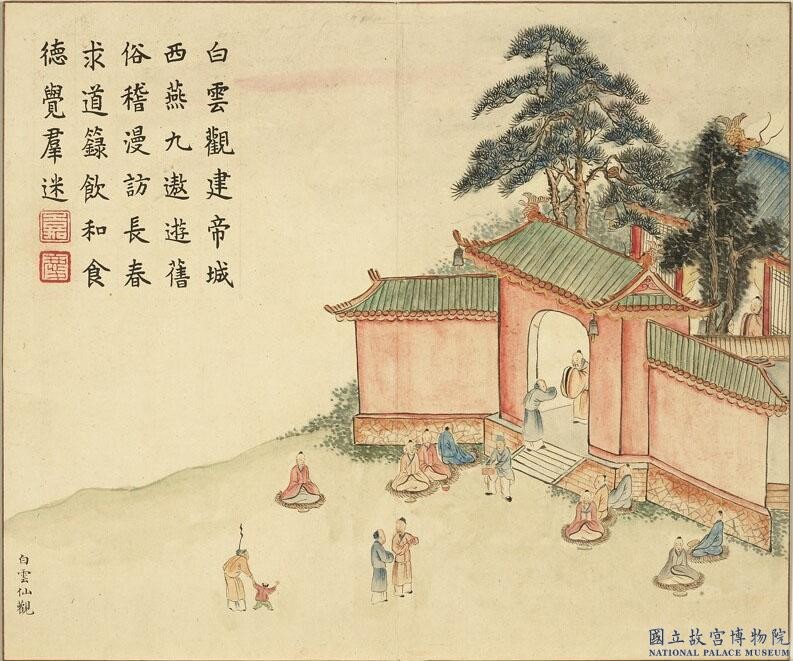 白雲觀建帝城
西燕九遨遊舊
俗稽漫訪長春
求道籙飲和食
德覺羣迷
白雲仙觀
國立故宮博物院
NATIONAL PALACE MUSEUM